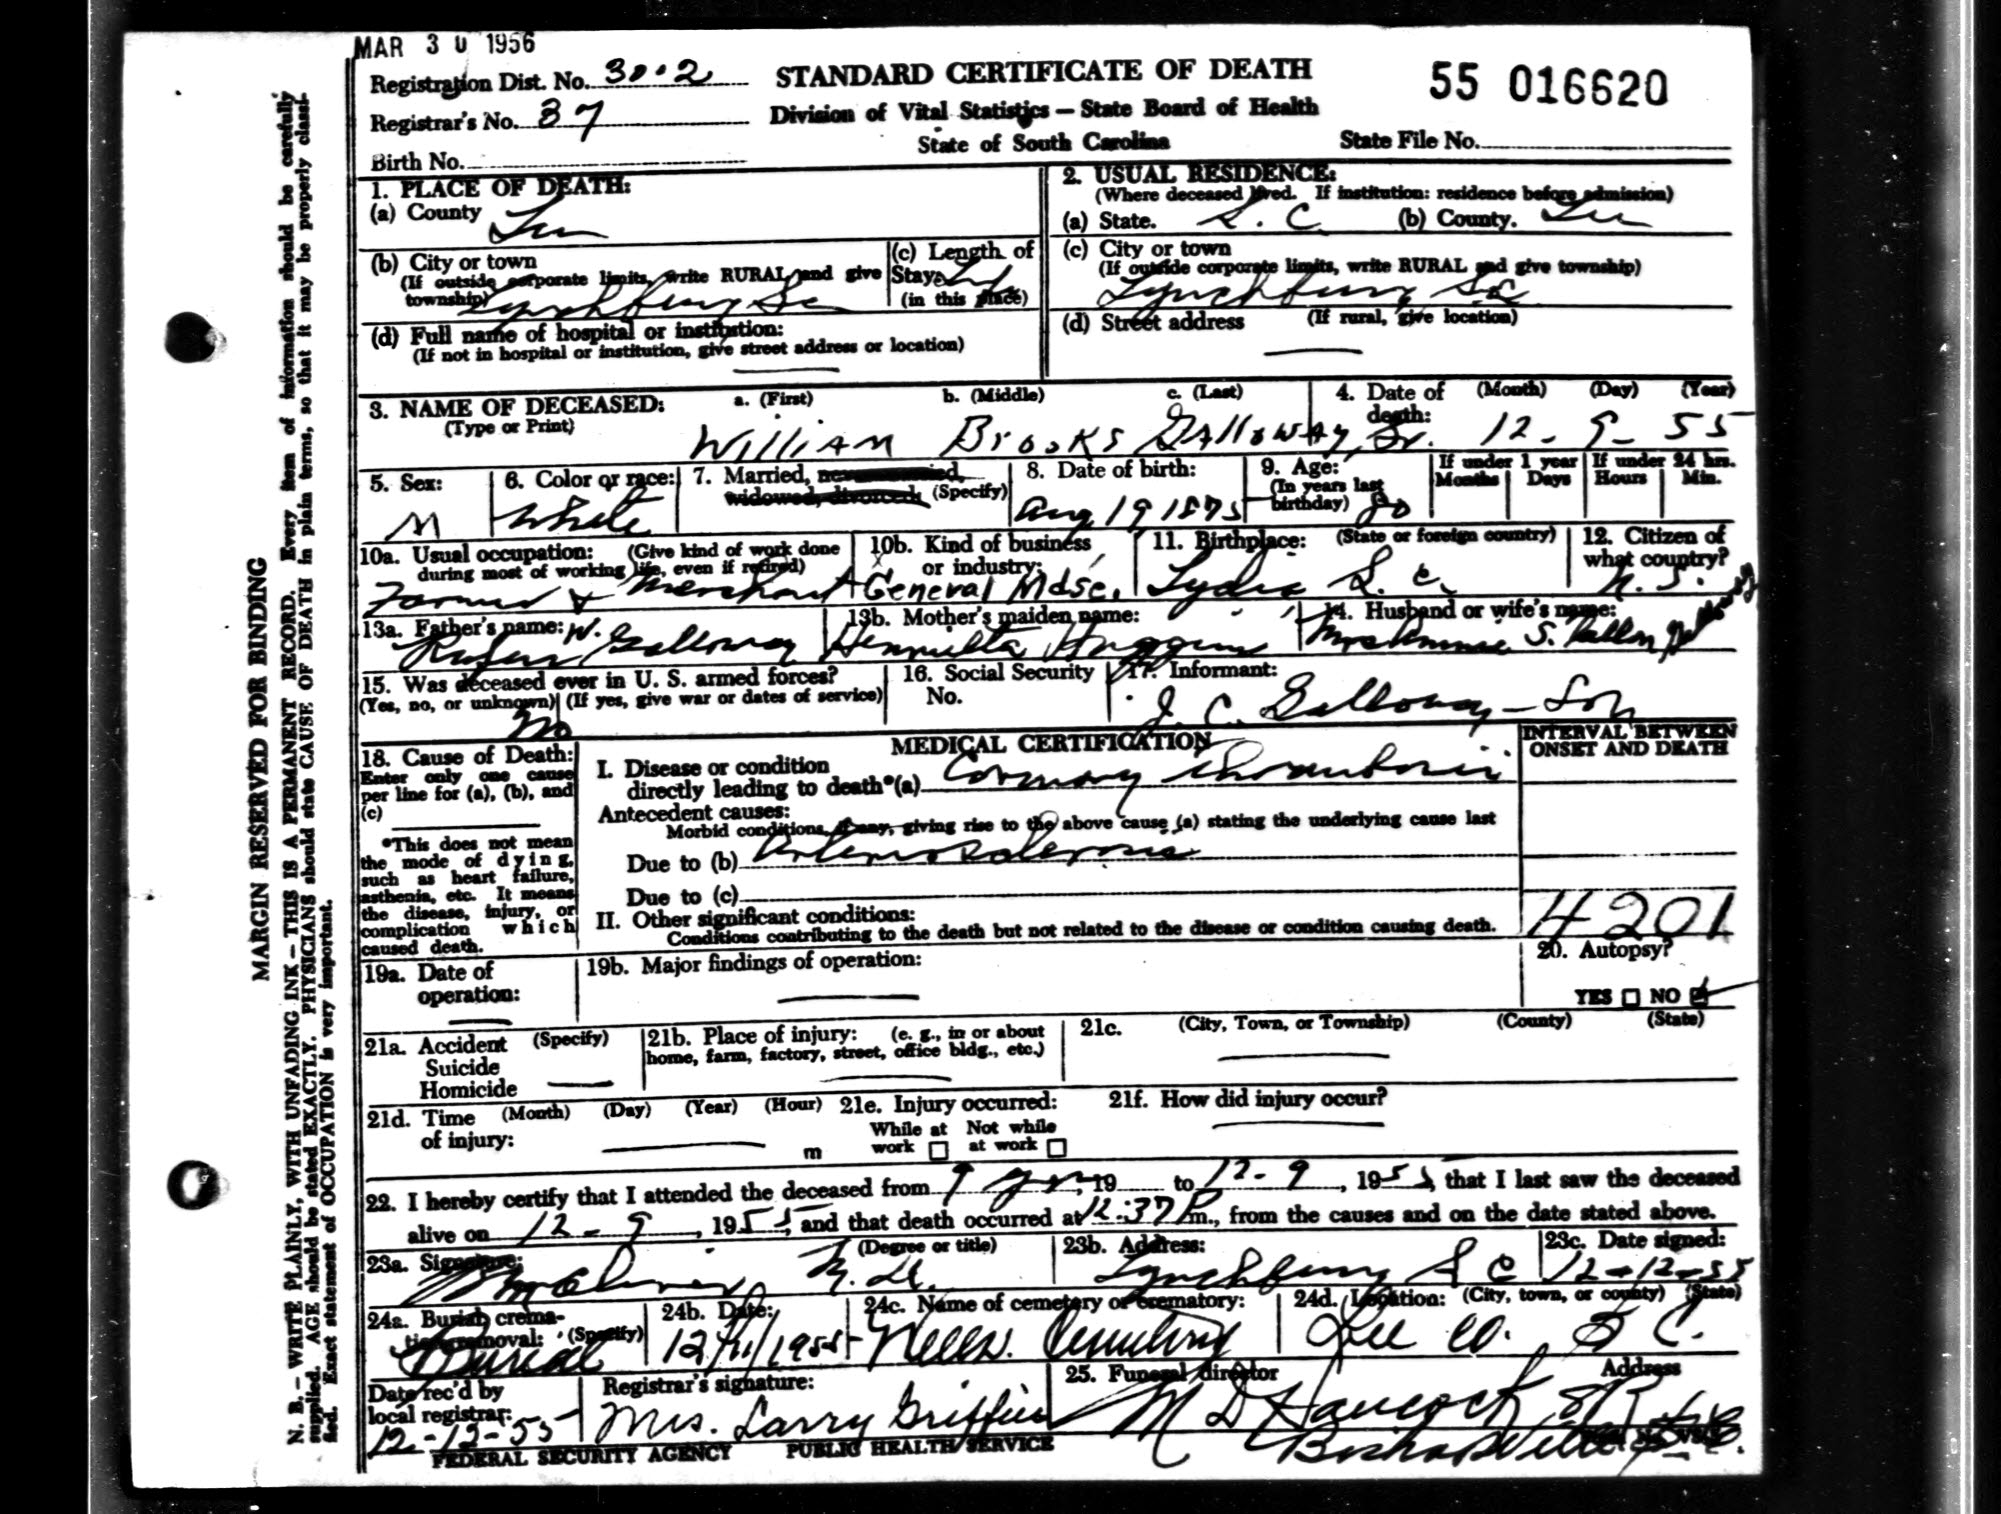 MAR 30 1956
Registration Dist. No. 30.2
STANDARD CERTIFICATE OF DEATH
55 016620
Registrar's No. 37
Division of Vital Statistics — State Board of Health
Birth No.
State of South Carolina
State File No.
1. PLACE OF DEATH:
(a) County Lee
2. USUAL RESIDENCE:
(Where deceased lived. If institution: residence before admission)
(a) State. S. C. (b) County. Lee
(b) City or town
(If outside corporate limits, write RURAL and give township) Lynchburg SC
(c) Length of Stay: Life
(in this place)
(c) City or town
(If outside corporate limits, write RURAL and give township)
Lynchburg, S.C.
(d) Full name of hospital or institution:
(If not in hospital or institution, give street address or location)
(d) Street address (If rural, give location)
3. NAME OF DECEASED:
(Type or Print)
a. (First) b. (Middle) c. (Last)
William Brooks Galloway, Sr.
4. Date of death: (Month) (Day) (Year)
12 - 9 - 55
5. Sex: M
6. Color or race: White
7. Married, never married, widowed, divorced: (Specify)
8. Date of birth: Aug 19 1875
9. Age: (In years last birthday) 80
If under 1 year Months Days
If under 24 hrs. Hours Min.
10a. Usual occupation: (Give kind of work done during most of working life, even if retired)
Farmer & Merchant
10b. Kind of business or industry:
General Mdse.
11. Birthplace: (State or foreign country)
Lydia S. C.
12. Citizen of what country?
U. S.
13a. Father's name: Rufus W. Galloway
13b. Mother's maiden name:
Henrietta Huggins
14. Husband or wife's name:
Mrs S. Galloway
15. Was deceased ever in U. S. armed forces?
(Yes, no, or unknown) (If yes, give war or dates of service)
No
16. Social Security No.
17. Informant:
J. C. Galloway - Son
18. Cause of Death:
Enter only one cause per line for (a), (b), and (c)
*This does not mean the mode of dying, such as heart failure, asthenia, etc. It means the disease, injury, or complication which caused death.
MEDICAL CERTIFICATION
INTERVAL BETWEEN ONSET AND DEATH
I. Disease or condition directly leading to death*(a) Coronary thrombosis
Antecedent causes:
Morbid conditions, if any, giving rise to the above cause (a) stating the underlying cause last
Due to (b) Arteriosclerosis
Due to (c)
II. Other significant conditions:
Conditions contributing to the death but not related to the disease or condition causing death.
4201
19a. Date of operation:
19b. Major findings of operation:
20. Autopsy?
YES NO
21a. Accident (Specify)
Suicide
Homicide
21b. Place of injury: (e. g., in or about home, farm, factory, street, office bldg., etc.)
21c. (City, Town, or Township) (County) (State)
21d. Time of injury: (Month) (Day) (Year) (Hour) m
21e. Injury occurred:
While at work Not while at work
21f. How did injury occur?
22. I hereby certify that I attended the deceased from 9 yrs, 19 to 12-9, 1955, that I last saw the deceased
alive on 12-9, 1955, and that death occurred at 12:37 Pm., from the causes and on the date stated above.
23a. Signature: (Degree or title)
M. D.
23b. Address:
Lynchburg S C
23c. Date signed:
12-12-55
24a. Burial, cremation, removal: (Specify)
Burial
24b. Date:
12/11/1955
24c. Name of cemetery or crematory:
Cemetery
24d. Location: (City, town, or county) (State)
Lee Co. S C.
Date rec'd by local registrar:
12-12-55
Registrar's signature:
Mrs. Larry Griffin
25. Funeral director Address
M D Hancock
Bishopville, S.C.
FEDERAL SECURITY AGENCY PUBLIC HEALTH SERVICE
MARGIN RESERVED FOR BINDING
N. B. — WRITE PLAINLY, WITH UNFADING INK — THIS IS A PERMANENT RECORD. Every item of information should be carefully
supplied. AGE should be stated EXACTLY. PHYSICIANS should state CAUSE OF DEATH in plain terms, so that it may be properly classi-
fied. Exact statement of OCCUPATION is very important.